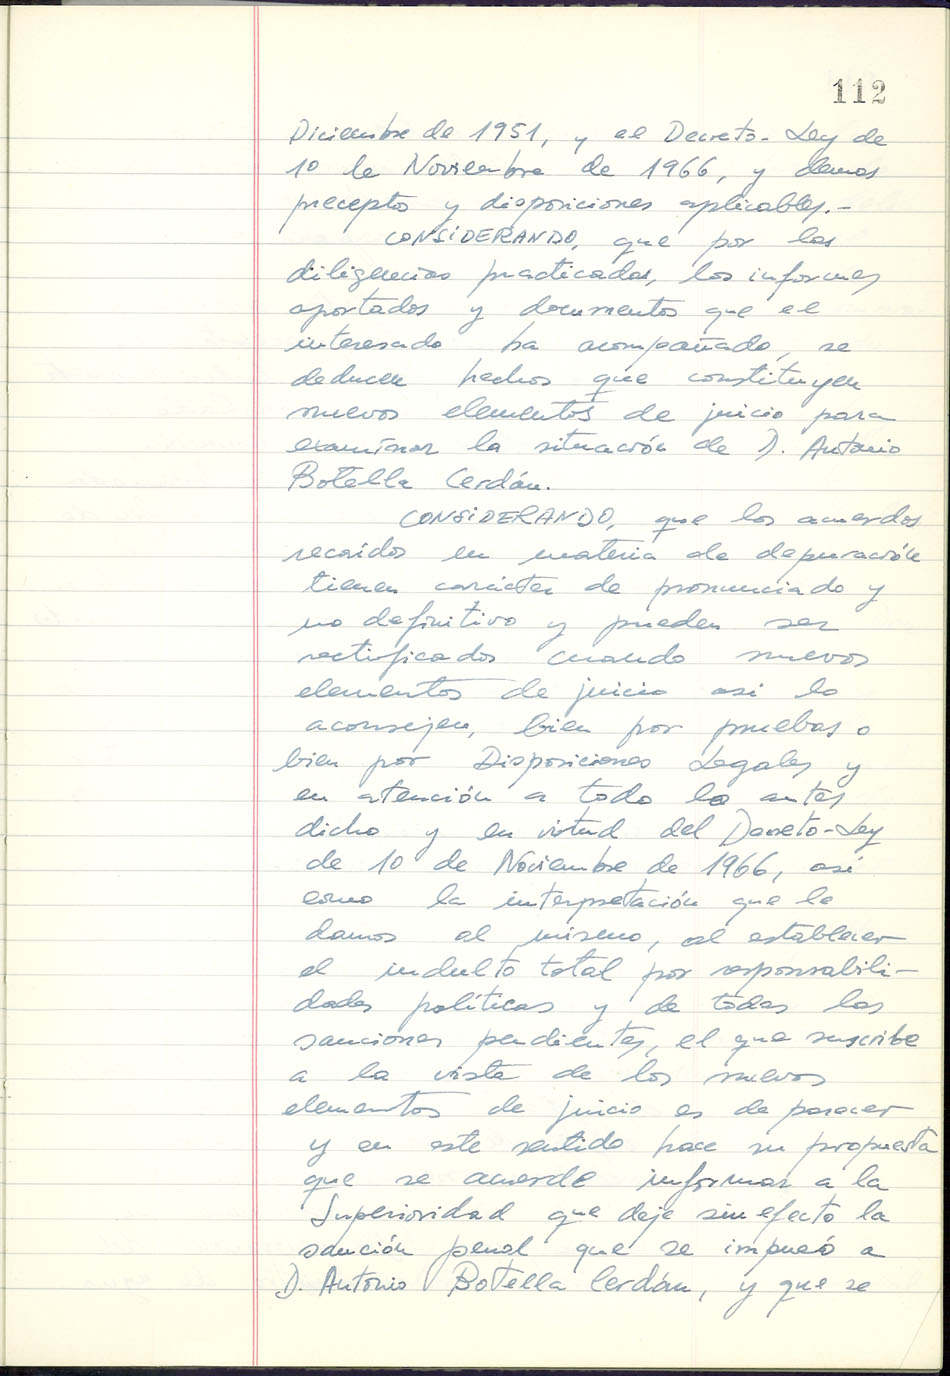 112
Diciembre de 1951, y el Decreto-Ley de
10 de Noviembre de 1966, y demas
precepto y disposiciones aplicables.-
CONSIDERANDO, que por las
diligencias practicadas, los informes
aportados y documentos que el
interesado ha acompañado, se
deducen hechos que constituyen
nuevos elementos de juicio para
examinar la situación de D. Antonio
Botella Cerdán.
CONSIDERANDO, que los acuerdos
recaidos en materia de depuración
tienen carácter de pronunciado y
no definitivo y pueden ser
rectificados cuando nuevos
elementos de juicio asi lo
aconsejen, bien por pruebas o
bien por Disposiciones Legales y
en atención a todo lo antes
dicho y en virtud del Decreto-Ley
de 10 de Noviembre de 1966, asi
como la interpretación que le
damos al mismo, al establecer
el indulto total por responsabili-
dades políticas y de todas las
sanciones pendientes, el que suscribe
a la vista de los nuevos
elementos de juicio es de parecer
y en este sentido hace su propuesta
que se acuerde informar a la
Superioridad que deje sin efecto la
sanción penal que se impuso a
D. Antonio Botella Cerdán, y que se